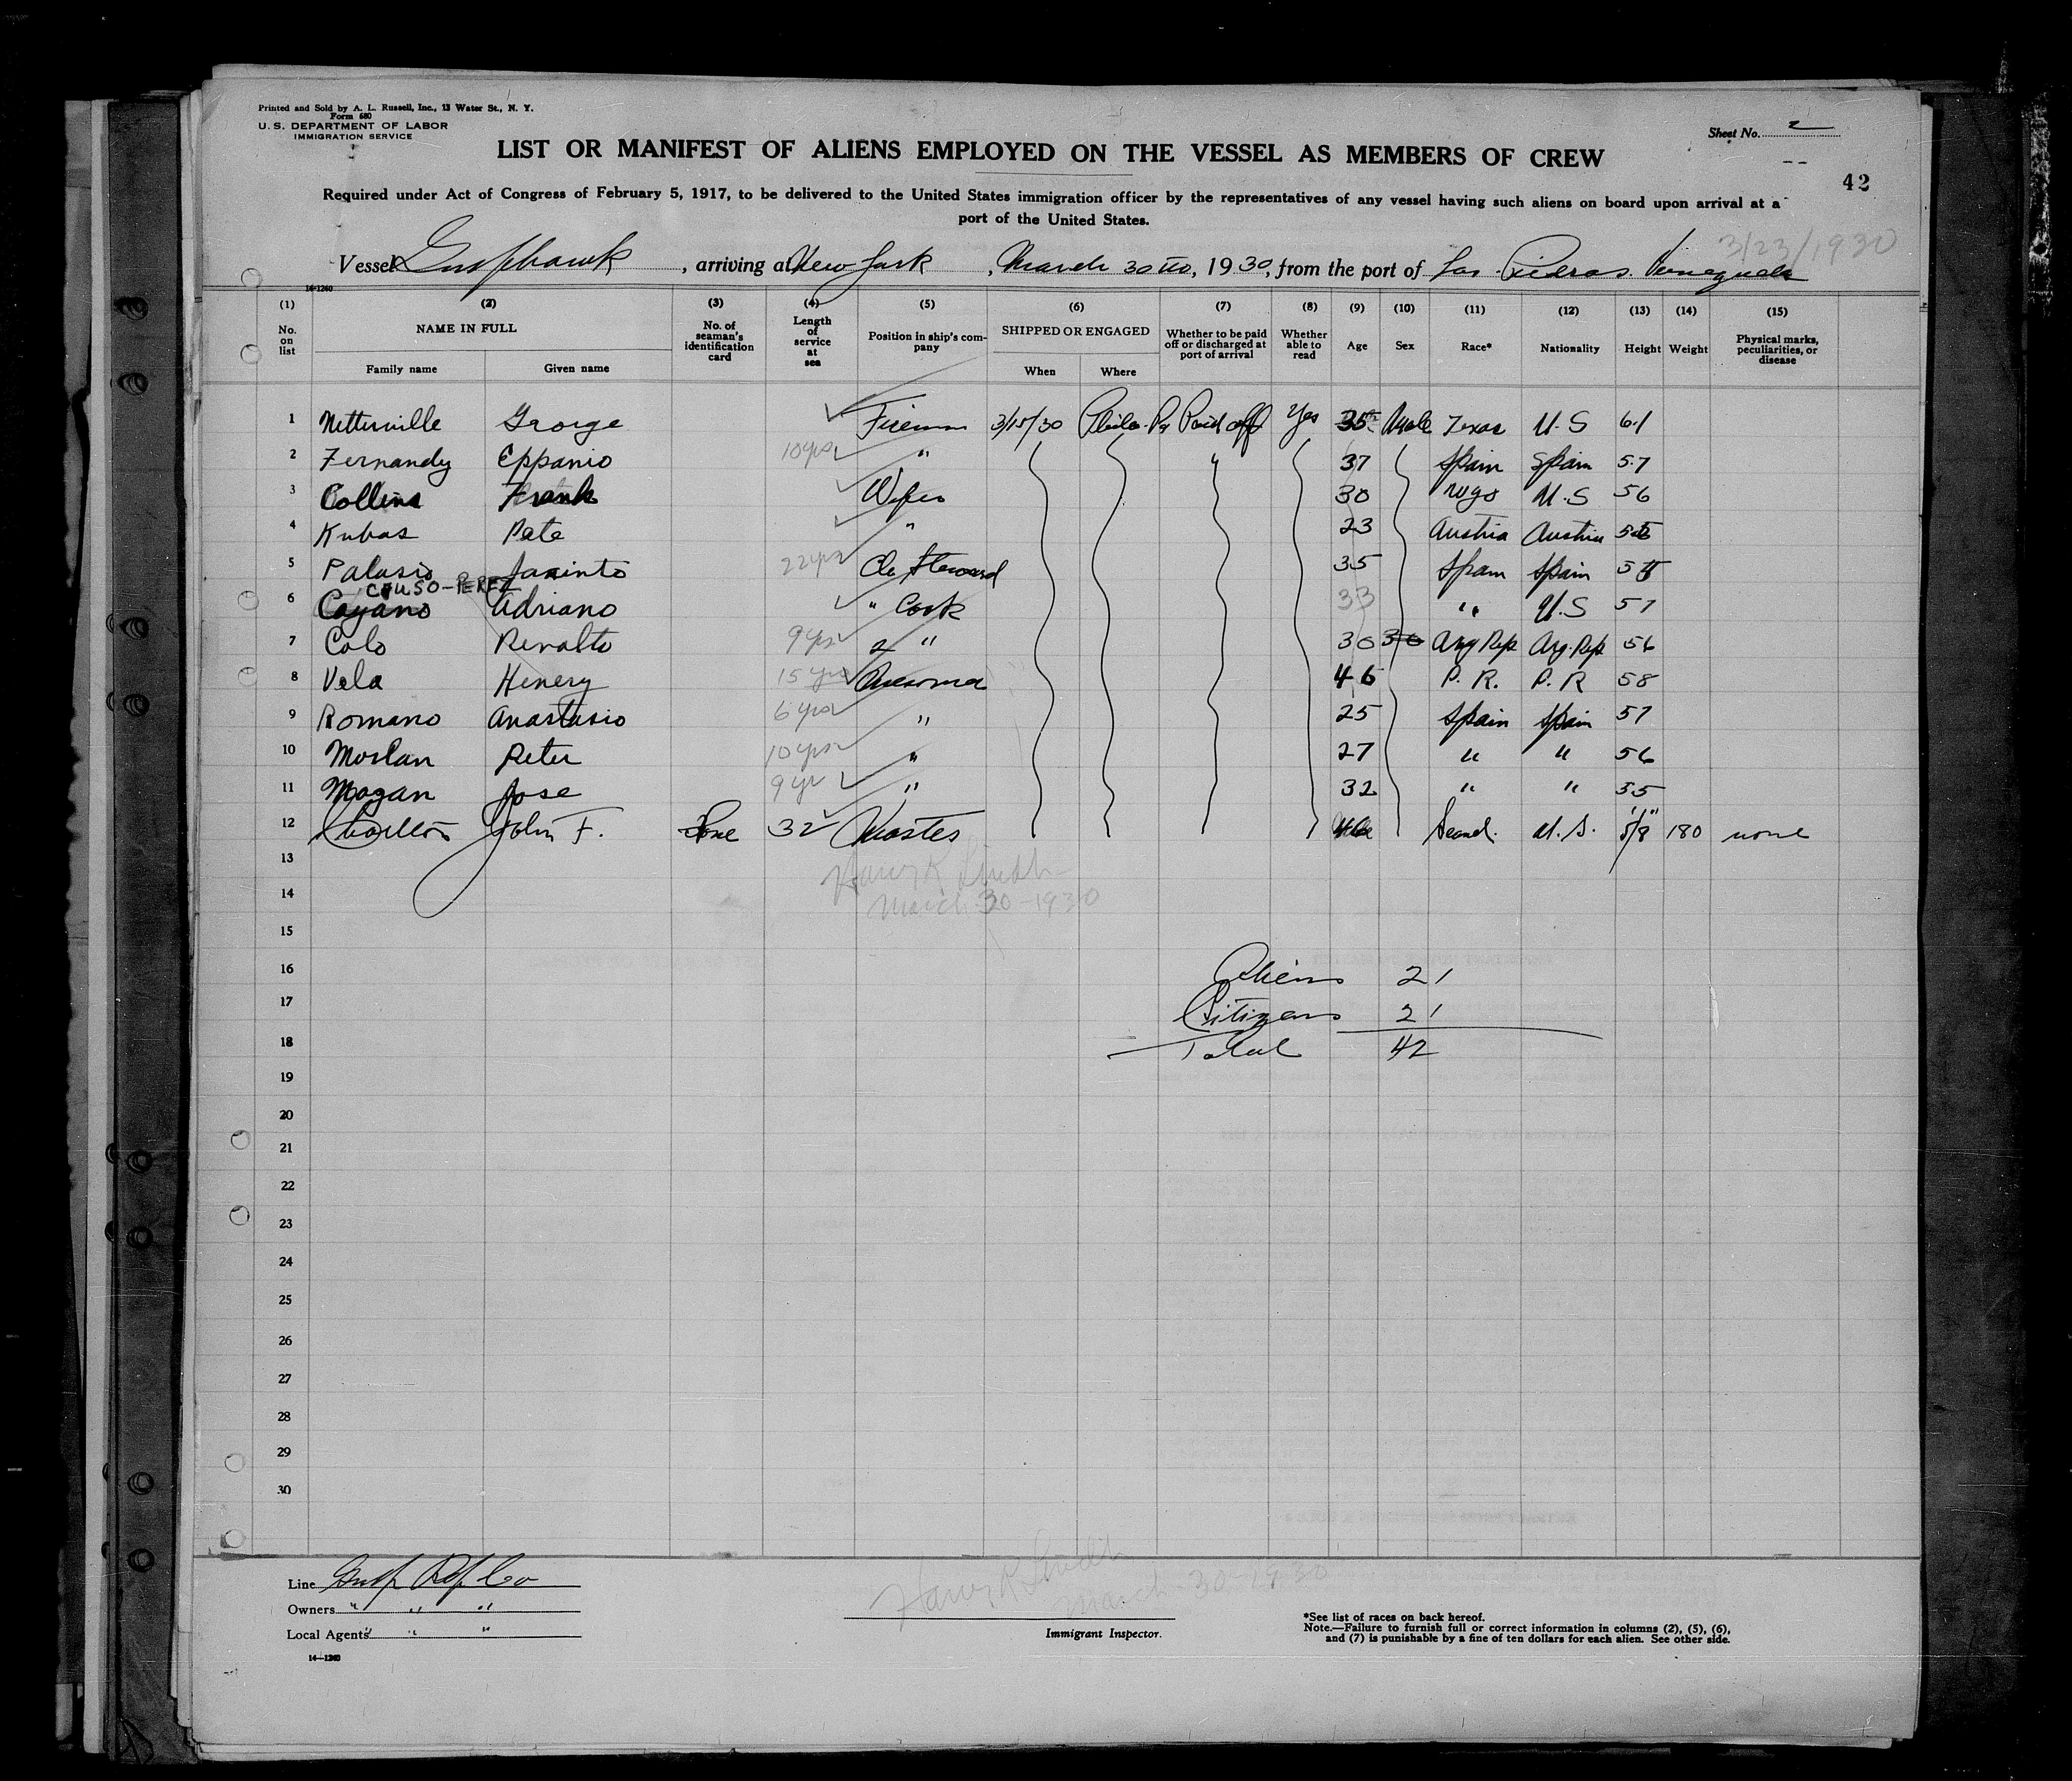 Printed and Sold by A. L. Russell, Inc., 13 Water St., N. Y.
Form 680
U. S. DEPARTMENT OF LABOR
IMMIGRATION SERVICE
Sheet No. 2
LIST OR MANIFEST OF ALIENS EMPLOYED ON THE VESSEL AS MEMBERS OF CREW
42
Required under Act of Congress of February 5, 1917, to be delivered to the United States immigration officer by the representatives of any vessel having such aliens on board upon arrival at a
port of the United States.
3/23/1930
Vessel Gulfhawk, arriving at New York, March 30th, 1930, from the port of Las Piedras Venezuela
14-1240
(1) (2) (3) (4) (5) (6) (7) (8) (9) (10) (11) (12) (13) (14) (15)
No. on list NAME IN FULL No. of seaman's identification card Length of service at sea Position in ship's company SHIPPED OR ENGAGED Whether to be paid off or discharged at port of arrival Whether able to read Age Sex Race* Nationality Height Weight Physical marks, peculiarities, or disease
Family name Given name When Where
1 Netterville George Fireman 3/15/30 Phila. Pa Paid off Yes 35 Male Texas U.S 61
2 Fernandy Eppanio 10yrs " 37 Spain Spain 57
3 Collins Frank Wiper 30 U.S 56
4 Kubas Pete " 23 Austria Austria
5 Palasio Jacinto 22yrs Ch Steward 35 Spain Spain
CAUSO-PEREZ
6 Cayano Adriano " Cook 33 " U.S 57
7 Colo Renalto 9yrs 2 " 30 30 Arg Rep Arg. Rep 56
8 Vela Henery 15 yrs 46 P. R. P. R 58
9 Romano Anastasio 6yrs " 25 Spain Spain 57
10 Moslan Peter 10yrs " 27 " " 56
11 Mogan Jose 9yr " 32 " " 55
12 John F. None 32 Master Scand. U. S. 5'8" 180 none
13
March 30-1930
14
15
16 Aliens 21
17 Citizens 21
18 Total 42
19
20
21
22
23
24
25
26
27
28
29
30
Line Gulf Ref Co
Owners " " "
March-30-1930
Local Agents " " "
Immigrant Inspector.
*See list of races on back hereof.
Note.—Failure to furnish full or correct information in columns (2), (5), (6),
and (7) is punishable by a fine of ten dollars for each alien. See other side.
14—1240